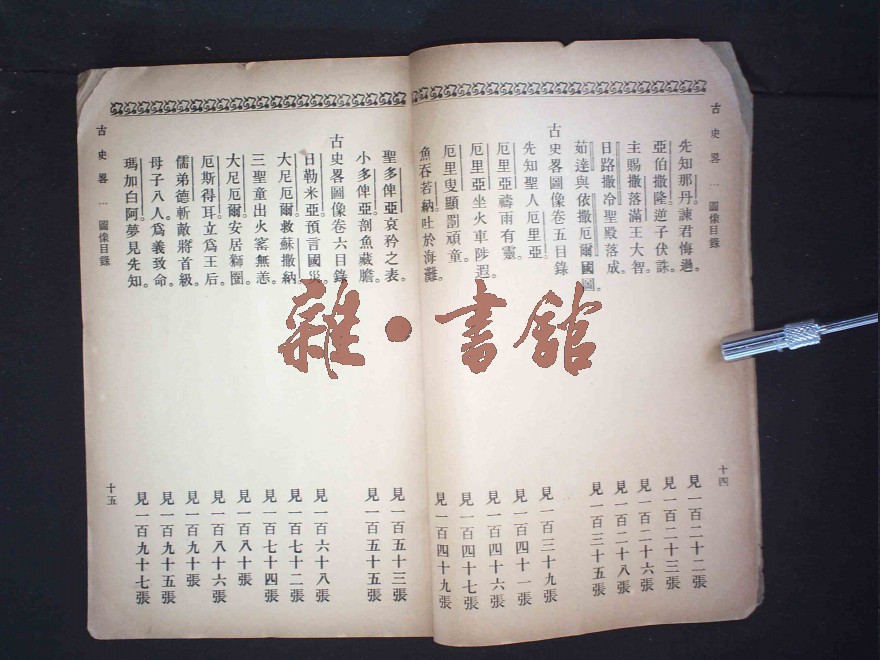 古史畧 圖像目錄
先知那丹諫君悔過。 見一百二十二張
亞伯撒隆逆子伏誅。 見一百二十三張
主賜撒落滿王大智 見一百二十六張
日路撒冷聖殿落成。 見一百二十八張
茹達與依撒厄爾國圖。 見一百三十五張
古史畧圖像卷五目錄
先知聖人厄里亞 見一百三十九張
厄里亞禱雨有靈。 見一百四十一張
厄里亞坐火車陟遐。 見一百四十六張
厄里叟顯罰頑童。 見一百四十七張
魚吞若納吐於海灘。 見一百四十九張
十四
聖多俾亞哀矜之表。 見一百五十三張
小多俾亞剖魚藏膽。 見一百五十五張
古史畧圖像卷六目錄
日勒米亞預言國災。 見一百六十八張
大尼厄爾救蘇撒納 見一百七十二張
三聖童出火窰無恙。 見一百七十四張
大尼厄爾安居獅圈。 見一百八十張
厄斯得耳立爲王后。 見一百八十六張
儒弟德斬敵將首級。 見一百九十張
母子八人爲義致命。 見一百九十五張
瑪加白阿夢見先知。 見一百九十七張
古史畧 圖像目錄
十五
雜·書館